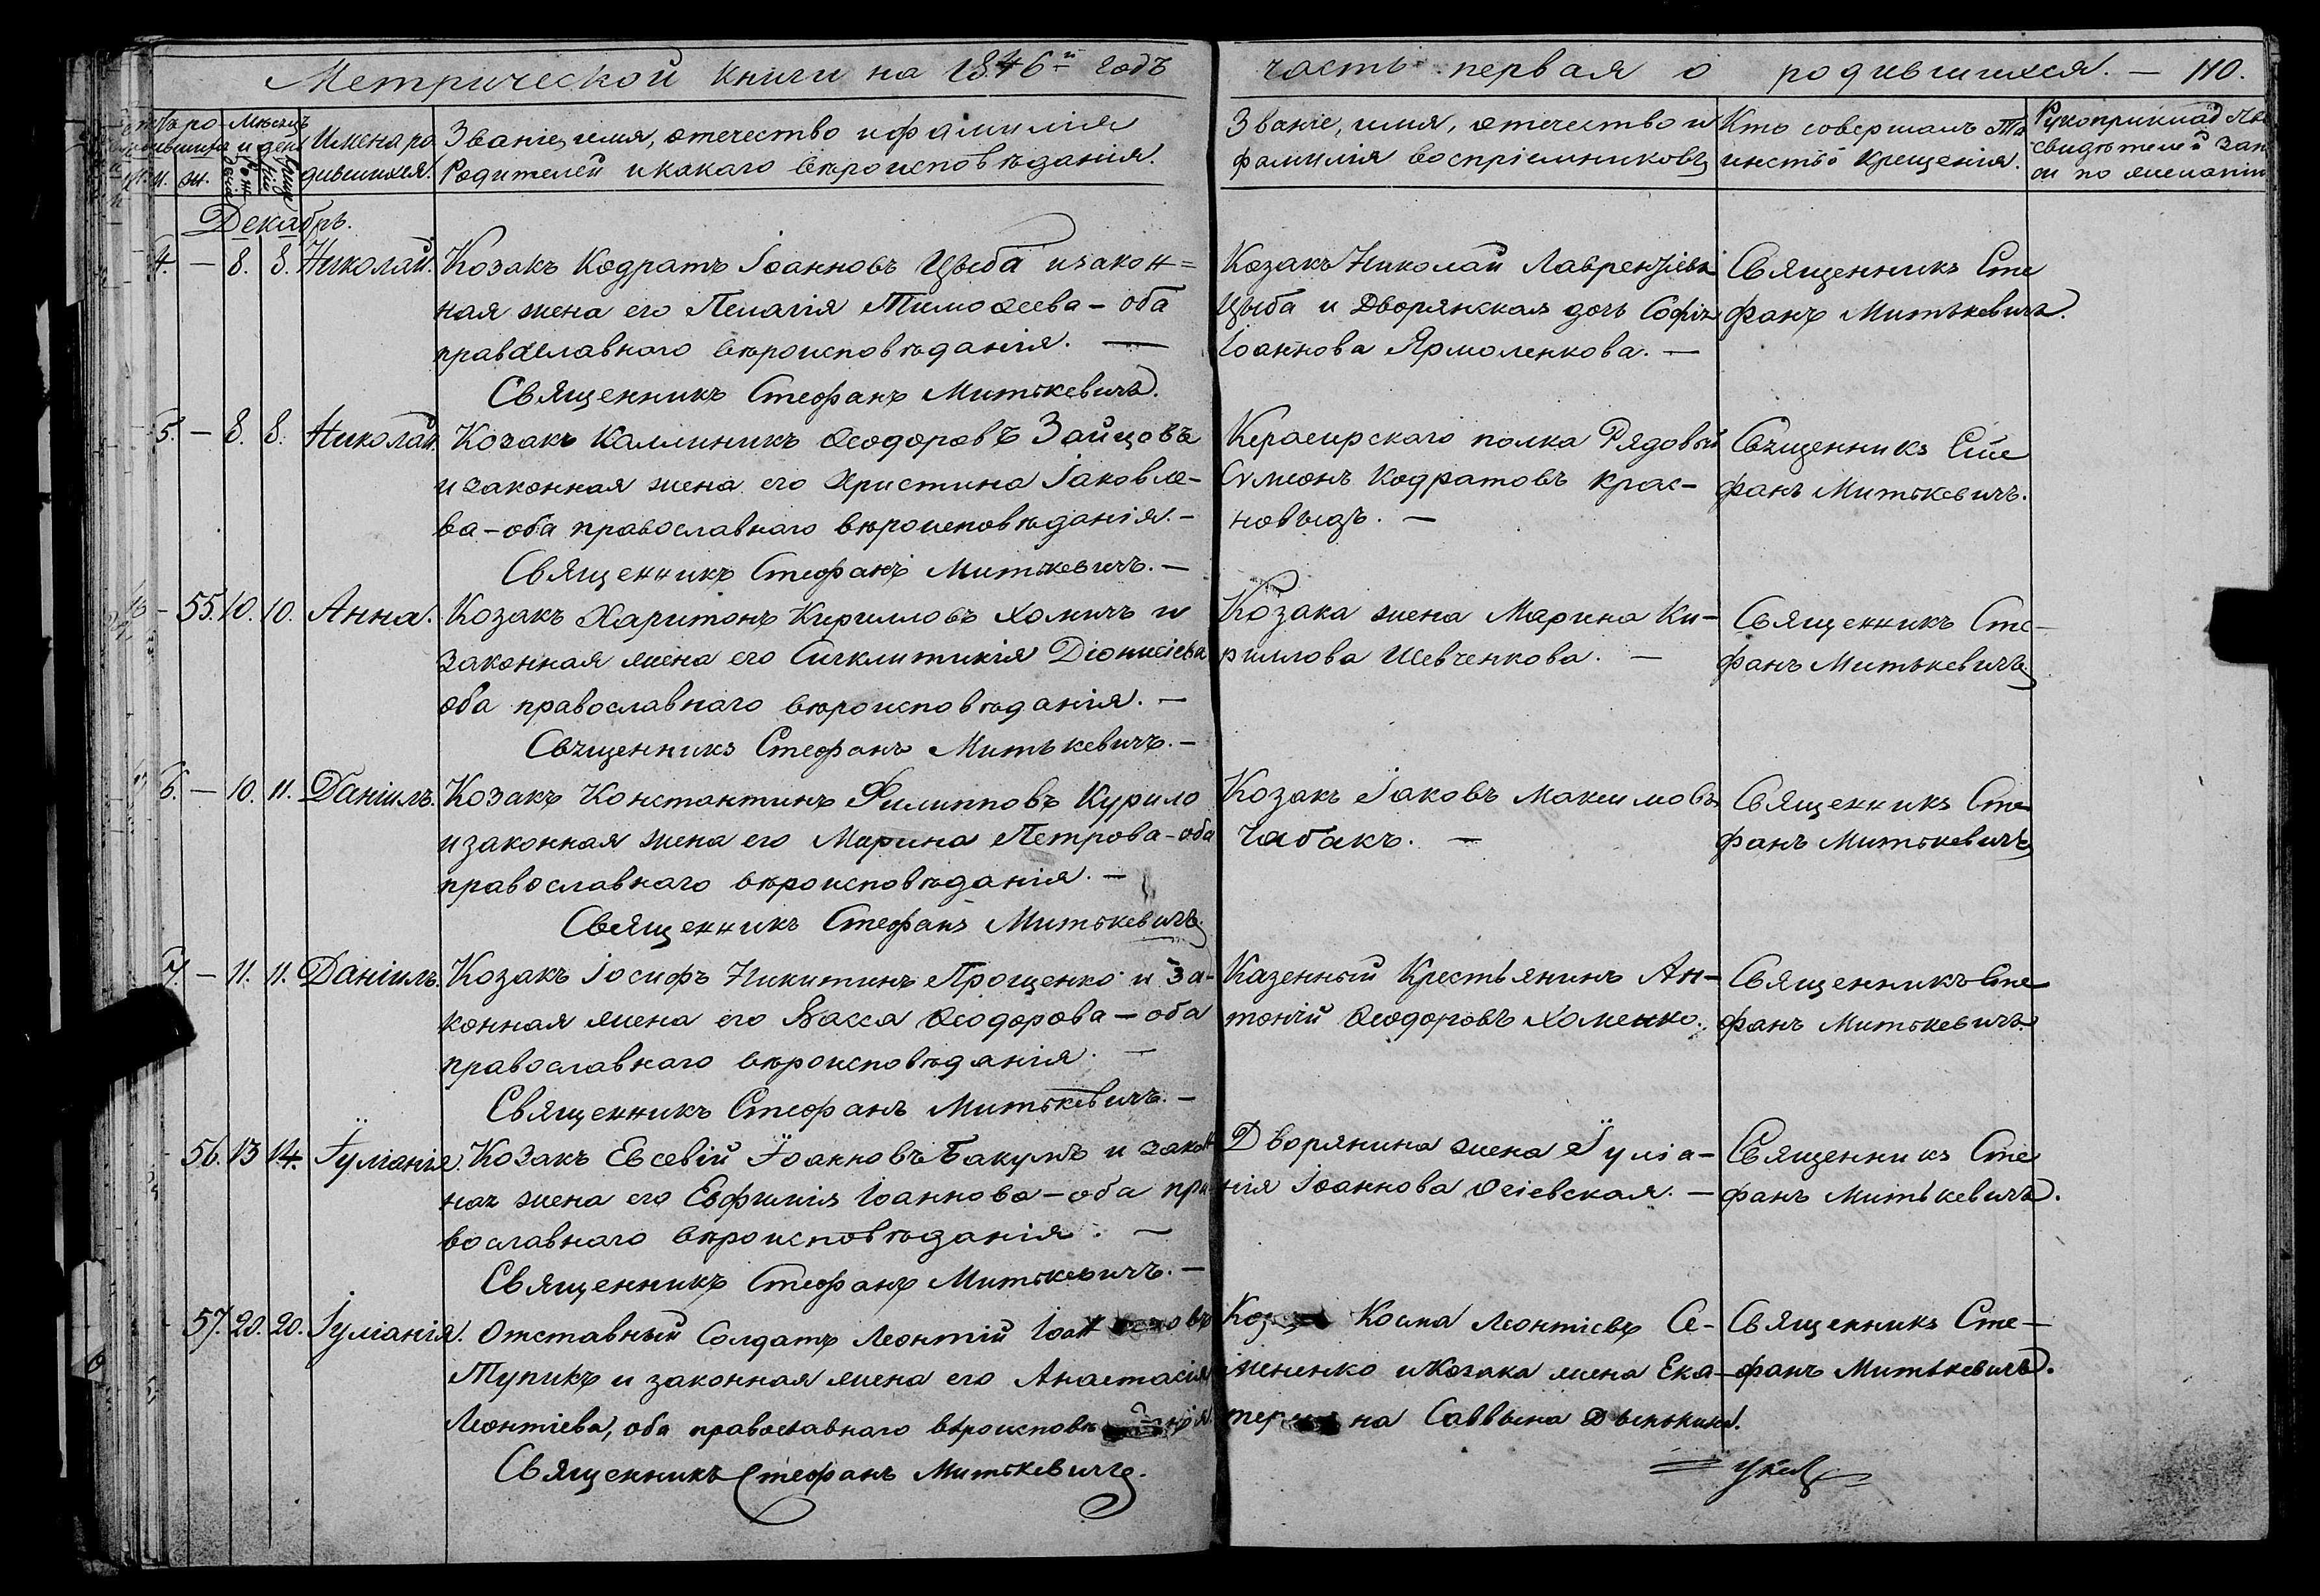 Метрической книги на 1846й годъ часть первая о родившихся. — 110.
Имена ро
дившихся.
Званіе, имя, отечество и фамилія
Родителей и какаго вѣроисповѣданія.
Званіе, имя, отечество и
фамилія воспріемниковъ
Кто совершалъ Та
инство крещенія.
Рукоприклад
свидѣтелей зап
си по желанію
Декабрь.
4. — 8. 8. Николай.
Козакъ Кодратъ Іоанновъ Цыба и закон=
ная жена его Пелагія Тимоѳеева — оба
православнаго вѣроисповѣданія. —
Священникъ Стефанъ Митькевичъ.
Козакъ Николай Лаврентіевъ
Цыба и Дворянская дочь Софія
Іоаннова Ярмоленкова. —
Священникъ Сте
фанъ Митькевичъ.
5. — 8. 8. Николай.
Козакъ Каллиникъ Ѳеодоровъ Зайцовъ
и законная жена его Христина Іаковле-
ва — оба православнаго вѣроисповѣданія. —
Священникъ Стефанъ Митькевичъ. —
Керасирскаго полка Рядовый
Сѵмеонъ Кодратовъ Крас-
новыдъ. —
Священникъ Сте
фанъ Митькевичъ.
— 55. 10. 10. Анна.
Козакъ Харитонъ Кирилловъ Хомичъ и
законная жена его Сигклитикія Діонисіева
оба православнаго вѣроисповѣданія. —
Священникъ Стефанъ Митькевичъ. —
Козака жена Марина Ки-
риллова Шевченкова. —
Священникъ Сте-
фанъ Митькевичъ
6. — 10. 11. Даніилъ.
Козакъ Константинъ Филипповъ Курило
и законная жена его Марина Петрова — оба
православнаго вѣроисповѣданія. —
Священникъ Стефанъ Митькевичъ.
Козакъ Іаковъ Максимовъ
Чабакъ. —
Священникъ Сте
фанъ Митькевичъ
7. — 11. 11. Даніилъ.
Козакъ Іосифъ Никитинъ Прощенко и за-
конная жена его Васса Ѳеодорова — оба
православнаго вѣроисповѣданія. —
Священникъ Стефанъ Митькевичъ. —
Казенный Крестьянинъ Ан-
тоній Ѳеодоровъ Хоменко.
Священникъ Сте
фанъ Митькевичъ
56. 13 14. Іуліанія.
Козакъ Евсевій Іоанновъ Бакумъ и закон
ная жена его Евфимія Іоаннова — оба пра
вославнаго вѣроисповѣданія. —
Священникъ Стефанъ Митькевичъ. —
Дворянина жена Іуліа-
нія Іоаннова Огіевская. —
Священникъ Сте
фанъ Митькевичъ.
57. 20. 20. Іуліанія.
Отставный Солдатъ Леонтій Іоанновъ
Тупикъ и законная жена его Анастасія
Леонтіева, оба православнаго вѣроисповѣданія.
Священникъ Стефанъ Митькевичъ.
Козакъ Косма Леонтіевъ Се-
мененко и Козака жена Ека-
терина Саввына
Священникъ Сте-
фанъ Митькевичъ.